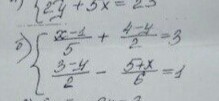 { 2y + 5x = 25
б) { x-1/5 + 4-y/2 = 3
{ 3-y/2 - 5+x/6 = 1